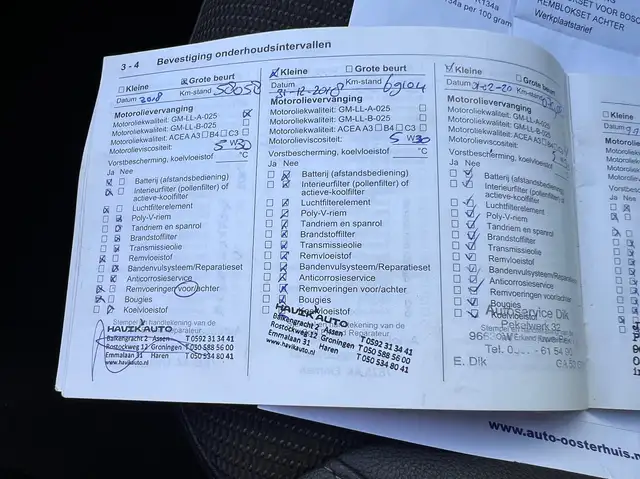 R134a
134a per 100 gram
REMBLOKSET VOOR BOS
REMBLOKSET ACHTER
Werkplaatstarief
3 - 4 Bevestiging onderhoudsintervallen
Kleine Grote beurt
Datum 2018 Km-stand
Motorolievervanging
Motoroliekwaliteit: GM-LL-A-025
Motoroliekwaliteit: GM-LL-B-025
Motoroliekwaliteit: ACEA A3 B4 C3
Motorolieviscositeit: 5 W30
Vorstbescherming, koelvloeistof °C
Ja Nee
Batterij (afstandsbediening)
Interieurfilter (pollenfilter) of
actieve-koolfilter
Luchtfilterelement
Poly-V-riem
Tandriem en spanrol
Brandstoffilter
Transmissieolie
Remvloeistof
Bandenvulsysteem/Reparatieset
Anticorrosieservice
Remvoeringen voor/achter
Bougies
Koelvloeistof
HAVIK AUTO
Balkengracht 2 Assen T 0592 31 34 41
Rostockweg 12 Groningen T 050 588 56 00
Emmalaan 31 Haren T 050 534 80 41
www.havikauto.nl
Kleine Grote beurt
Datum 31-12-2018 Km-stand 69104
Motorolievervanging
Motoroliekwaliteit: GM-LL-A-025
Motoroliekwaliteit: GM-LL-B-025
Motoroliekwaliteit: ACEA A3 B4 C3
Motorolieviscositeit: 5 W30
Vorstbescherming, koelvloeistof °C
Ja Nee
Batterij (afstandsbediening)
Interieurfilter (pollenfilter) of
actieve-koolfilter
Luchtfilterelement
Poly-V-riem
Tandriem en spanrol
Brandstoffilter
Transmissieolie
Remvloeistof
Bandenvulsysteem/Reparatieset
Anticorrosieservice
Remvoeringen voor/achter
Bougies
Koelvloeistof
HAVIK AUTO
Balkengracht 2 Assen T 0592 31 34 41
Rostockweg 12 Groningen T 050 588 56 00
Emmalaan 31 Haren T 050 534 80 41
www.havikauto.nl
Kleine Grote beurt
Datum Km-stand
Motorolievervanging
Motoroliekwaliteit: GM-LL-A-025
Motoroliekwaliteit: GM-LL-B-025
Motoroliekwaliteit: ACEA A3 B4 C3
Motorolieviscositeit:
Vorstbescherming, koelvloeistof
Ja Nee
Batterij (afstandsbediening)
Interieurfilter (pollenfilter) of
actieve-koolfilter
Luchtfilterelement
Poly-V-riem
Tandriem en spanrol
Brandstoffilter
Transmissieolie
Remvloeistof
Bandenvulsysteem/Reparatieset
Anticorrosieservice
Remvoeringen voor/achter
Bougies
Koelvloeistof
Autoservice Dik
Pekelwerk 32
Tel. 61 54 00
E. Dik
Kleine
Datum
Ja Nee
www.auto-oosterhuis.n